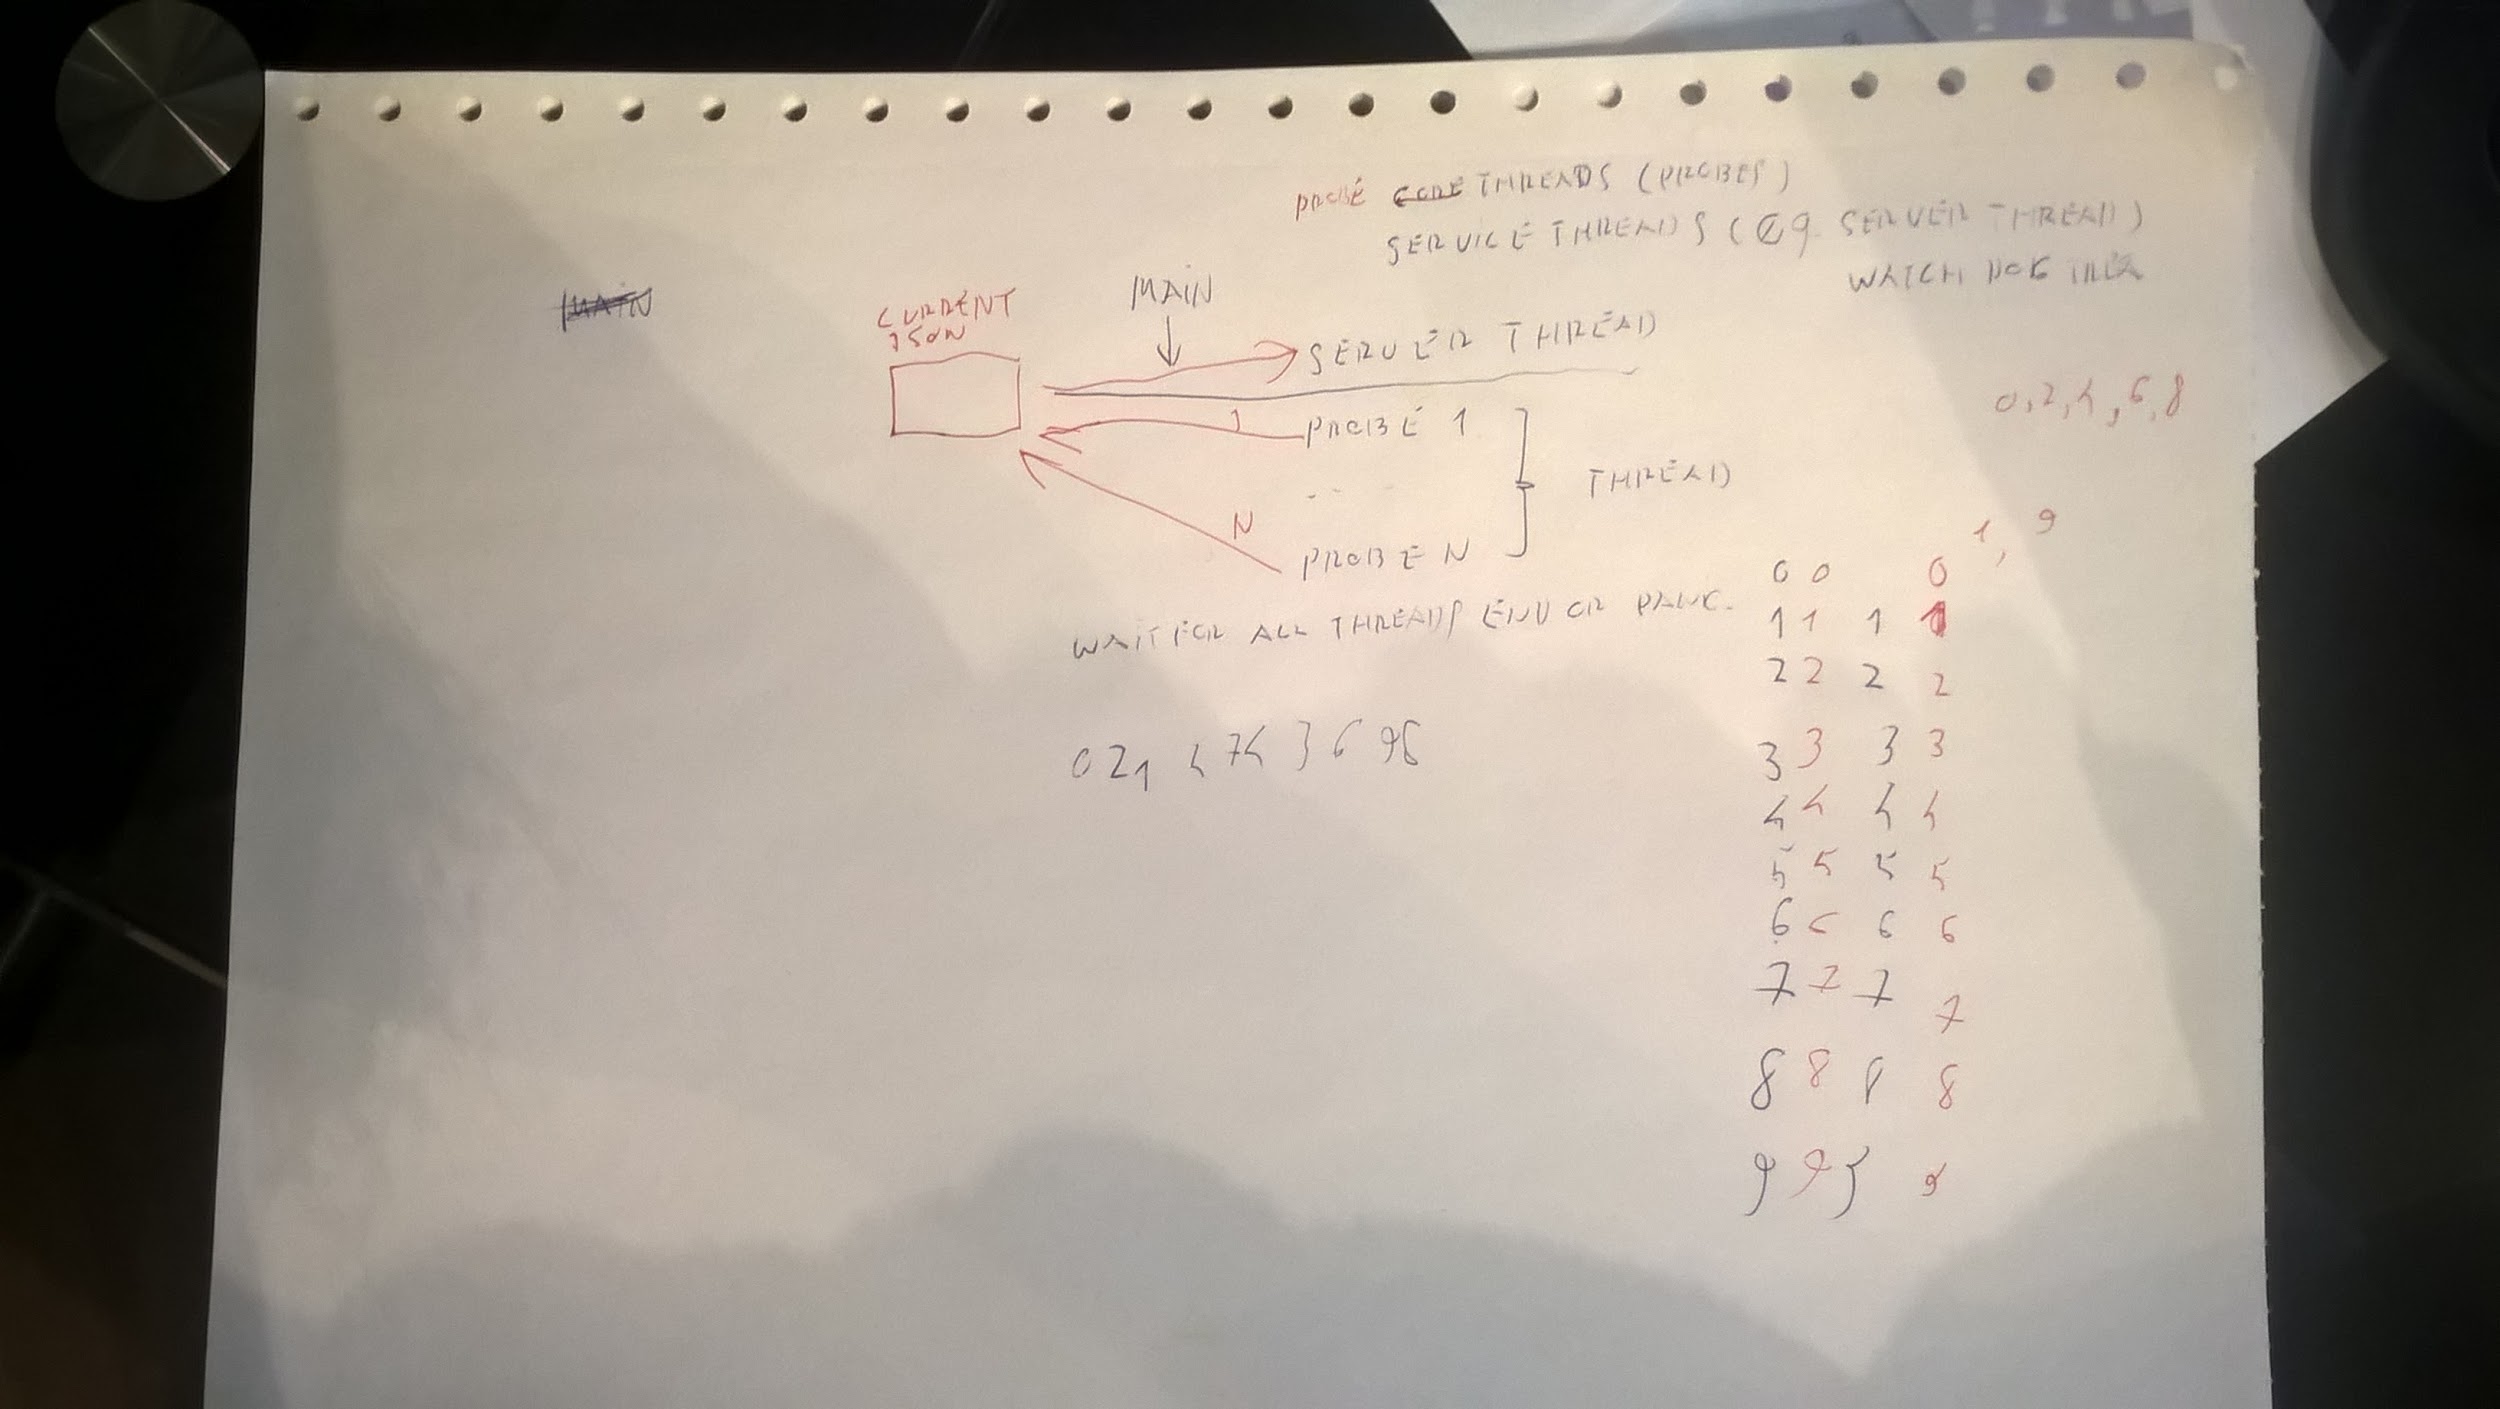 PROBE CORE THREADS (PROBES)
SERVICE THREADS (EG. SERVER THREAD)
WATCH
MAIN
CURRENT
JSON
MAIN
SERVER THREAD
0, 2, 4, 6, 8
1
PROBE 1
...
THREAD
N
PROBE N
1, 9
WAIT FOR ALL THREADS END OR PANIC.
0 0 0
1 1 1 1
2 2 2 2
0 2 1 4 7 4 3 6 9
3 3 3 3
4 4 4 4
5 5 5 5
6 6 6 6
7 7 7 7
8 8 8 8
9 9 9 9